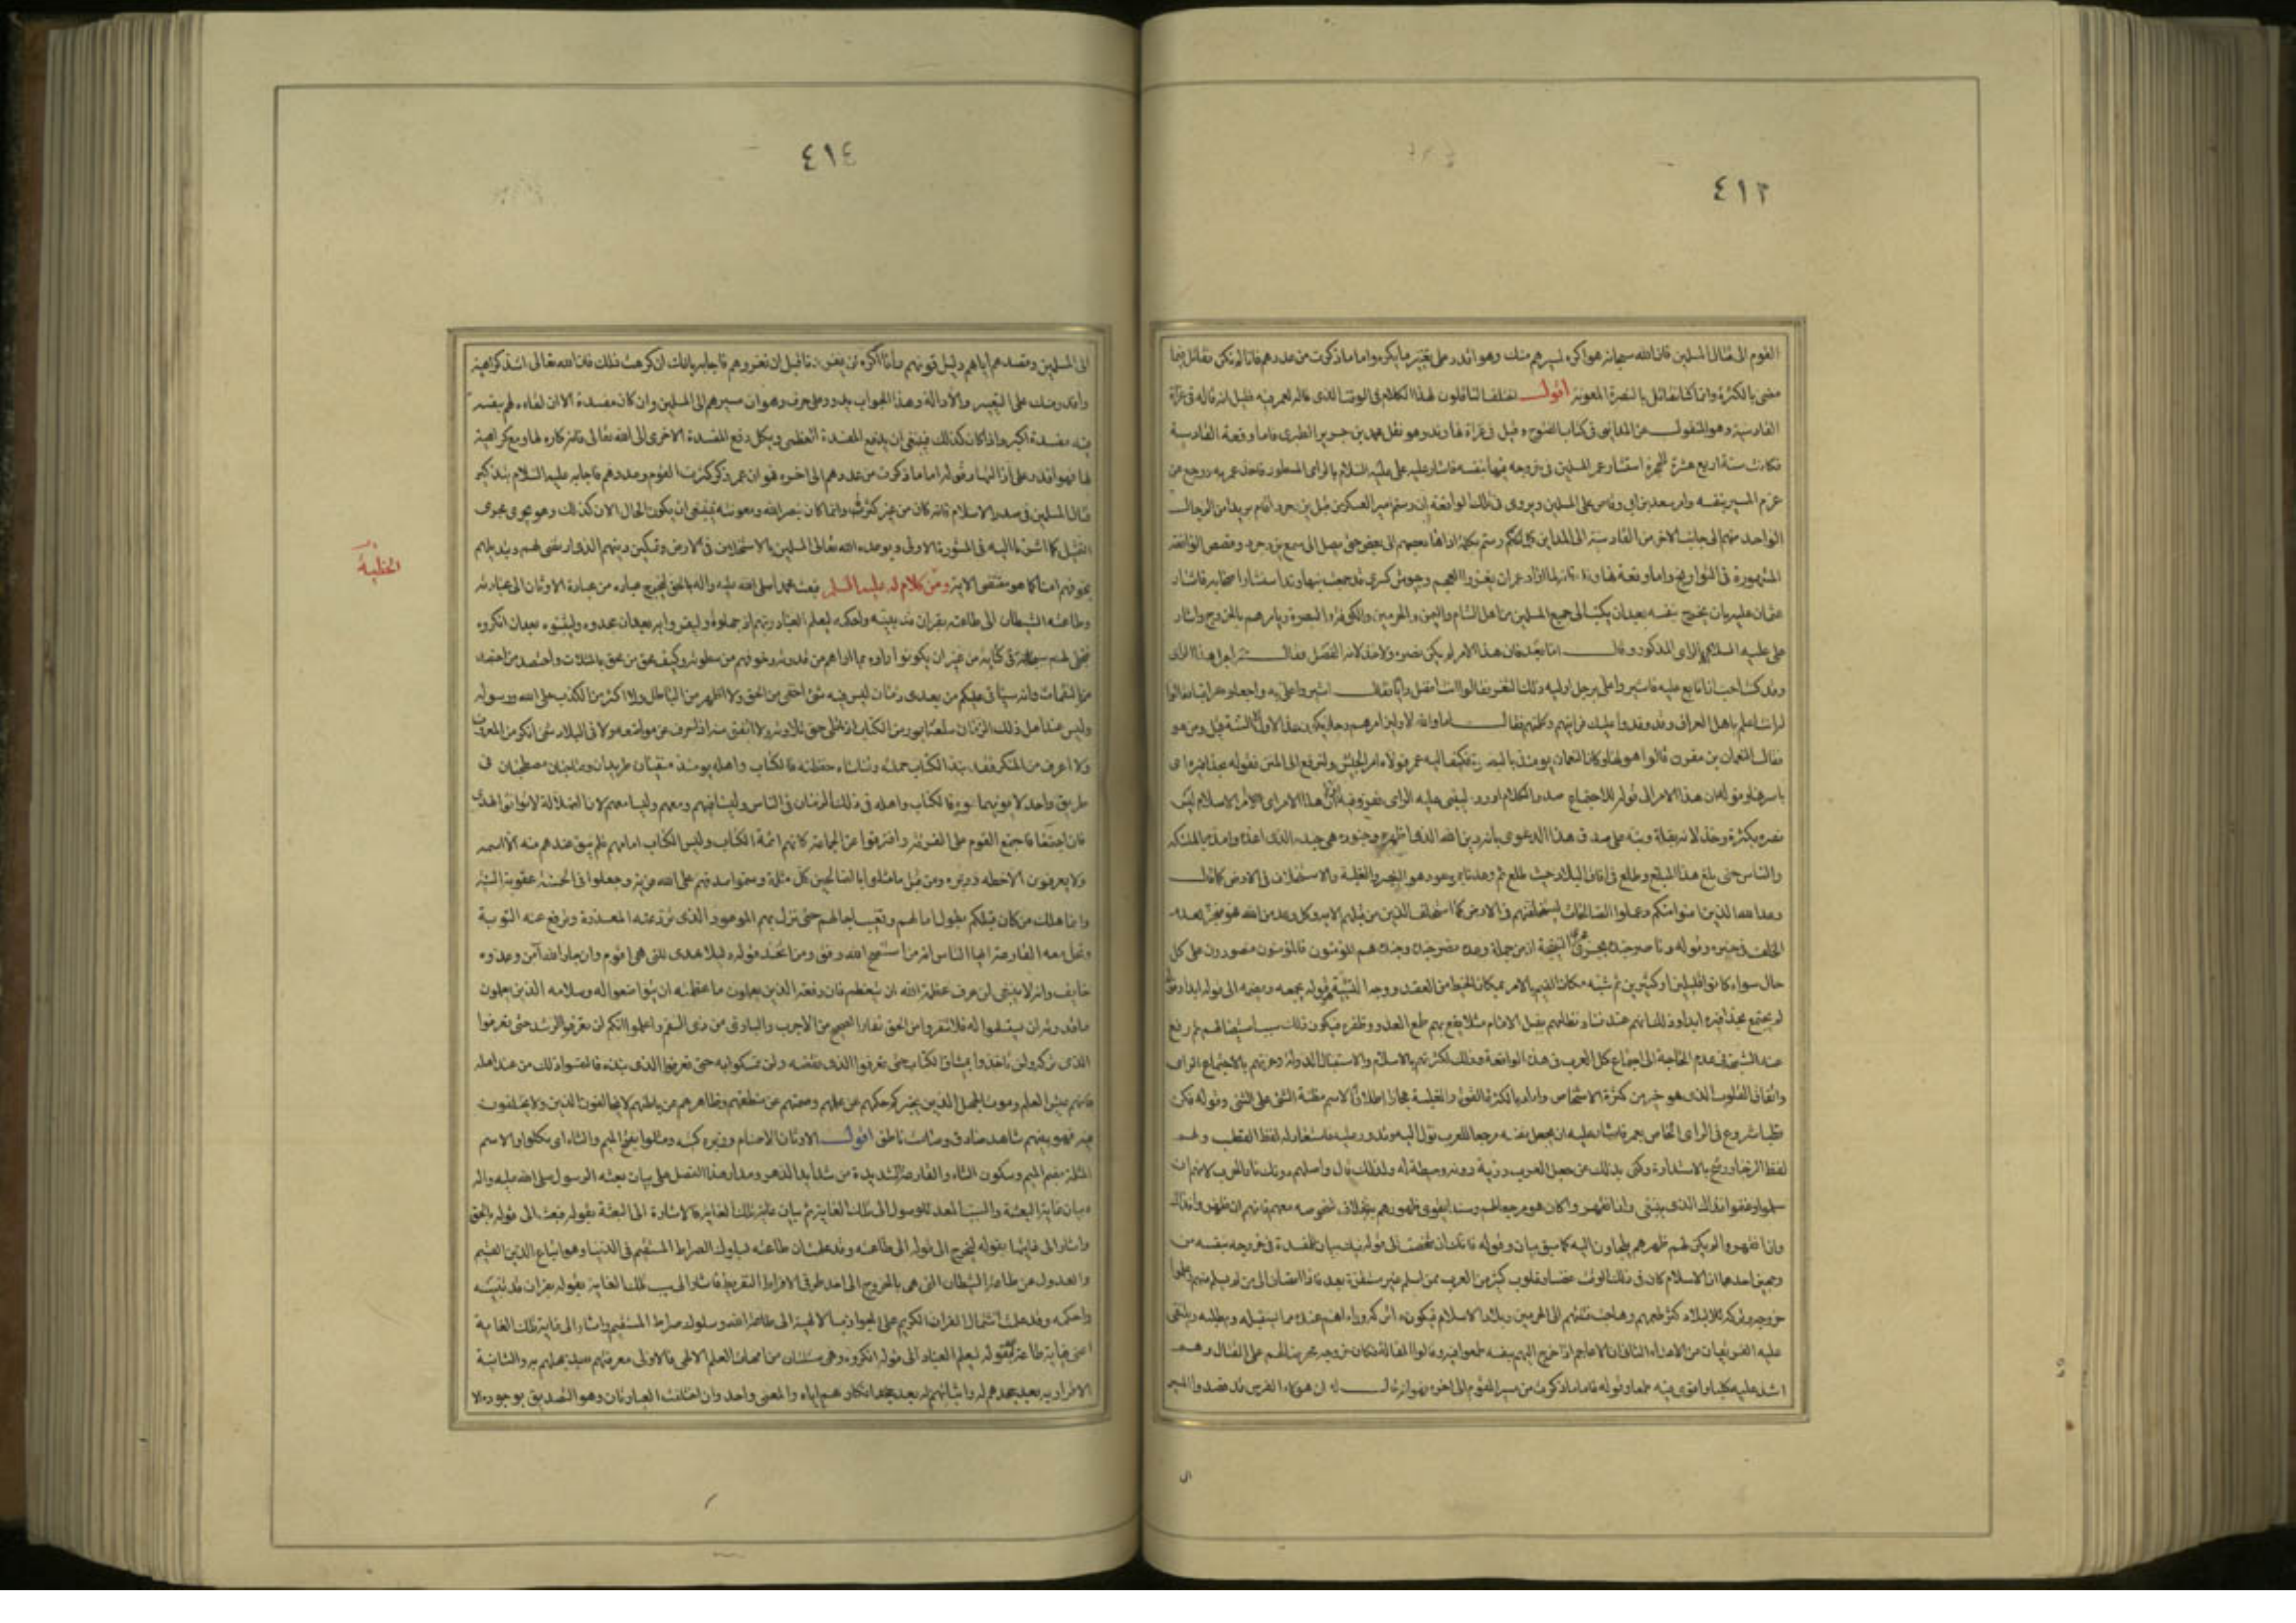 ٤١٣
القوم الى قتال المسلمين فان الله سبحانه هو اكره لمسيرهم منك وهو اقدر على تغيير ما يكره واما ما ذكرت من عددهم فانا لم نكن نقاتل فيما
مضى بالكثرة وانما كنا نقاتل بالنصرة والمعونة اقول اختلف الناقلون لهذا الكلام فى الوقت الذى قاله لعمر فيه فقيل انه قاله فى غزاة
القادسية وهو المنقول عن المداينى فى كتاب الفتوح وقيل فى غزاة نهاوند وهو نقل محمد بن جرير الطبرى فاما وقعة القادسية
فكانت سنة اربع عشرة للهجرة استشار عمر المسلمين فى خروجه فيها بنفسه فاشار عليه على عليه السلام بالراى المسطور فاخذ عمر به ورجع عن
عزم المسير بنفسه وامر سعد بن ابى وقاص على المسلمين ويروى فى تلك الواقعة ان رستم امير العسكر من قبل يزدجرد اقام بريدا من الرجال
الواحد منهم الى جانب الاخر من القادسية الى المداين كلما تكلم رستم بكلمة اداها بعضهم الى بعض حتى يصل الى سمع يزدجرد وقصص الواقعة
المشهورة فى التواريخ واما وقعة نهاوند فانه لما اراد عمر ان يغزو العجم وجيوش كسرى قد جمعت بنهاوند استشار اصحابه فاشار
عثمان عليه بان يخرج بنفسه بعد ان يكتب الى جميع المسلمين من اهل الشام واليمن والحرمين والكوفة والبصرة ويامرهم بالخروج واشار
على عليه السلام بالراى المذكور وقال اما بعد فان هذا الامر لم يكن نصره ولا خذلانه الفصل فقال عمر اجل هذا الراى
وقد كنت احب ان اتابع عليه فاشيروا على برجل اوليه ذلك الثغر فقالوا انت افضل رايا فقال اشيروا على به واجعلوه عراقيا فقالوا
انت اعلم باهل العراق وقد وفدوا عليك فرايتهم وكلمتهم فقال اما والله لاولين امرهم رجلا يكون غدا لاول الاسنة قيل ومن هو
فقال النعمان بن مقرن قالوا هو لها وكان النعمان يومئذ بالبصرة فكتب اليه عمر فولاه امر الجيش
نصره بكثرة وخذلانه بقلة ونبه على صدق هذا الدعوى بانه دين الله الذى اظهره وجنوده هى جنده الذى اعده وامده بالملائكة
والناس حتى بلغ هذا المبلغ وطلع فى افاق البلاد حيث طلع ثم وعدنا بموعود هو النصر والغلبة والاستخلاف فى الارض كما قال
وعد الله الذين امنوا منكم وعملوا الصالحات ليستخلفنهم فى الارض كما استخلف الذين من قبلهم الاية وكل وعد من الله فهو منجز لعدم
حال سواء كانوا قليلين او كثيرين ثم شبه مكان القيم بالامر بمكان الخيط من العقد ووجه الشبه قوله يجمعه ويضمه الى قوله ابدا
عند الشبه فى عدم الحاجة الى اجتماع كل العرب فى هذا الواقعة وذلك لكثرتهم بالاسلام واقبال الدولة وعزتهم بالاجتماع الراى
واتفاق القلوب الذى هو خير من كثرة الاشخاص واراد بالكثرة القوة والغلبة مجازا اطلاقا لاسم مظنة الشىء على الشىء وقوله فكن
قطبا شروع فى الراى الخاص بعمر فاشار عليه ان يجعل نفسه مرجعا للعرب تؤل اليه وتدور عليه فاستعار له لفظ القطب ولهم
لفظ الرحا ورشح بالاستدارة وكنى بذلك عن جعل العرب دريئة دونه وحيطة له ولذلك قال واصلهم دونك نار الحرب لانهم ان
سلموا وغنموا فذلك الذى ينبغى وان انقهروا كان هو مرجعا لهم وسندا يقوى ظهورهم بخلاف شخوصه معهم فانهم ان ظفروا فذاك
وان انقهروا لم يكن لهم ظهر هم يلجاون اليه كما سبق بيانه وقوله فانك ان شخصت الى قوله بيان للمفسدة فى خروجه بنفسه من
وجهين احدهما ان الاسلام كان فى ذلك الوقت غضا وقلوب كثير من العرب ممن اسلم غير مستقرة بعد
عليه الفريقان من الاعداء الثانى ان الاعاجم اذا خرج اليهم بنفسه طمعوا فيه وقالوا المقالة فكان خروجه محرضا لهم على القتال وهم
اشد عليه كلبا واقوى فيه طمعا وقوله فاما ما ذكرت من مسير القوم الى اخره فهو انه قال له ان هؤلاء الفرس قد قصدوا المسير
الى
٤١٤
الى المسلمين وقصدهم اياهم دليل قوتهم وانا اكره ان يغزونا قبل ان نغزوهم فاجابه بانك ان كرهت ذلك فان الله تعالى اشد كراهية
واقدر منك على التغيير والازالة وهذا الجواب يدور على حرف وهو ان مسيرهم الى المسلمين وان كان مفسدة الا ان لقاءه لهم بنفسه
فيه مفسدة اكبر واذا كان كذلك فينبغى ان يدفع المفسدة العظمى ويكل دفع المفسدة الاخرى الى الله تعالى فانه كاره لها ومع كراهية
لها فهو اقدر على ازالتها وقوله اما ما ذكرت من عددهم الى اخره فهو ان عمر ذكر كثرت القوم وعددهم فاجابه عليه السلام بتذكير
قتال المسلمين فى صدر الاسلام فانه كان من غير كثرة وانما كان بنصر الله ومعونته فينبغى ان يكون الحال الان كذلك وهو يجرى مجرى
التمثيل كما اشرنا اليه فى المشورة الاولى ويوعد الله تعالى المسلمين بالاستخلاف فى الارض وتمكين دينهم الذى ارتضى لهم وتبديلهم
بخوفهم امنا كما هو مقتضى الاية ومن كلام له عليه السلم فبعث محمدا صلى الله عليه واله بالحق ليخرج عباده من عبادة الاوثان الى عبادته
الخطبة
وطاعة الشيطان الى طاعته بقران قد بينه واحكمه ليعلم العباد ربهم اذ جهلوه وليقروا به بعد ان جحدوه وليثبتوه بعد ان انكروه
فتجلى لهم سبحانه فى كتابه من غير ان يكونوا راوه بما اراهم من قدرته وخوفهم من سطوته وكيف محق من محق بالمثلات واحتصد من احتصد
من النقمات وانه سياتى عليكم من بعدى زمان ليس فيه شئ اخفى من الحق ولا اظهر من الباطل ولا اكثر من الكذب على الله ورسوله
وليس عند اهل ذلك الزمان سلعة ابور من الكتاب اذا تلى حق تلاوته ولا انفق منه اذا حرف عن مواضعه ولا فى البلاد شئ انكر من المعروف
ولا اعرف من المنكر فقد نبذ الكتاب حملته وتناساه حفظته فالكتاب واهله يومئذ منفيان طريدان وصاحبان مصطحبان فى
طريق واحد لا يؤويهما مؤو فالكتاب واهله فى ذلك الزمان فى الناس وليسا فيهم ومعهم وليسا معهم لان الضلالة لا توافق الهدى
وان اجتمعا فاجتمع القوم على الفرقة وافترقوا عن الجماعة كانهم ائمة الكتاب وليس الكتاب امامهم فلم يبق عندهم منه الا اسمه
ولا يعرفون الا خطه وزبره ومن قبل ما مثلوا بالصالحين كل مثلة وسموا صدقهم على الله فرية وجعلوا فى الحسنة عقوبة السيئة
وانما هلك من كان قبلكم بطول امالهم وتغيب اجالهم حتى نزل بهم الموعود الذى ترد عنه المعذرة وترفع عنه التوبة
وتحل معه القارعة ايها الناس انه من استنصح الله وفق ومن اتخذ قوله دليلا هدى للتى هى اقوم وان جار الله آمن وعدوه
خايف وانه لا ينبغى لمن عرف عظمة الله ان يتعظم فان رفعة الذين يعلمون ما عظمته ان يتواضعوا له وسلامة الذين يعلمون
ما قدرته ان يستسلموا له فلا تنفروا من الحق نفار الصحيح من الاجرب والبارى من ذى السقم واعلموا انكم لن تعرفوا الرشد حتى تعرفوا
الذى تركه ولن تاخذوا بميثاق الكتاب حتى تعرفوا الذى نقضه ولن تمسكوا به حتى تعرفوا الذى نبذه فالتمسوا ذلك من عند اهله
فانهم عيش العلم وموت الجهل الذين يخبركم حكمهم عن علمهم وصمتهم عن منطقهم وظاهرهم عن باطنهم لا يخالفون الدين ولا يختلفون
فيه فهو بينهم شاهد صادق وصامت ناطق اقول الاوثان الاصنام وزبره كتبه ومثلوا بفتح الميم والثاء اى نكلوا والاسم
المثلة بضم الميم وسكون الثاء والقارعة الشديدة من شدايد الدهر ومدار هذا الفصل على بيان بعثة الرسول صلى الله عليه واله
وبيان غاية البعثة والسبب المعد للوصول الى تلك الغاية ثم بيان غاية تلك الغاية فالاشارة الى البعثة بقوله فبعث الى قوله بالحق
واشار الى غايتها بقوله ليخرج الى قوله الى طاعته وقد علمت ان طاعته سلوك الصراط المستقيم فى الدنيا وهو اتباع الدين القيم
والعدول عن طاعة الشيطان التى هى بالخروج الى احد طرفى الافراط والتفريط فاشار الى سبب تلك الغاية بقوله بقران قد بينه
واحكمه وقد علمت اشتمال القران الكريم على الجواذب الالهية الى طاعة الله وسلوك صراط المستقيم واشار الى غاية تلك الغاية
اعنى غاية طاعة بقوله ليعلم العباد الى قوله انكروه وهى مسئلتان من امهات العلم الالهى فالاولى معرفتهم بعد جهلهم به والثانية
الاقرار به بعد جحدهم له واثباتهم له بعد انكارهم اياه والمعنى واحد وان اختلفت العبارتان وهو التصديق بوجوده لا